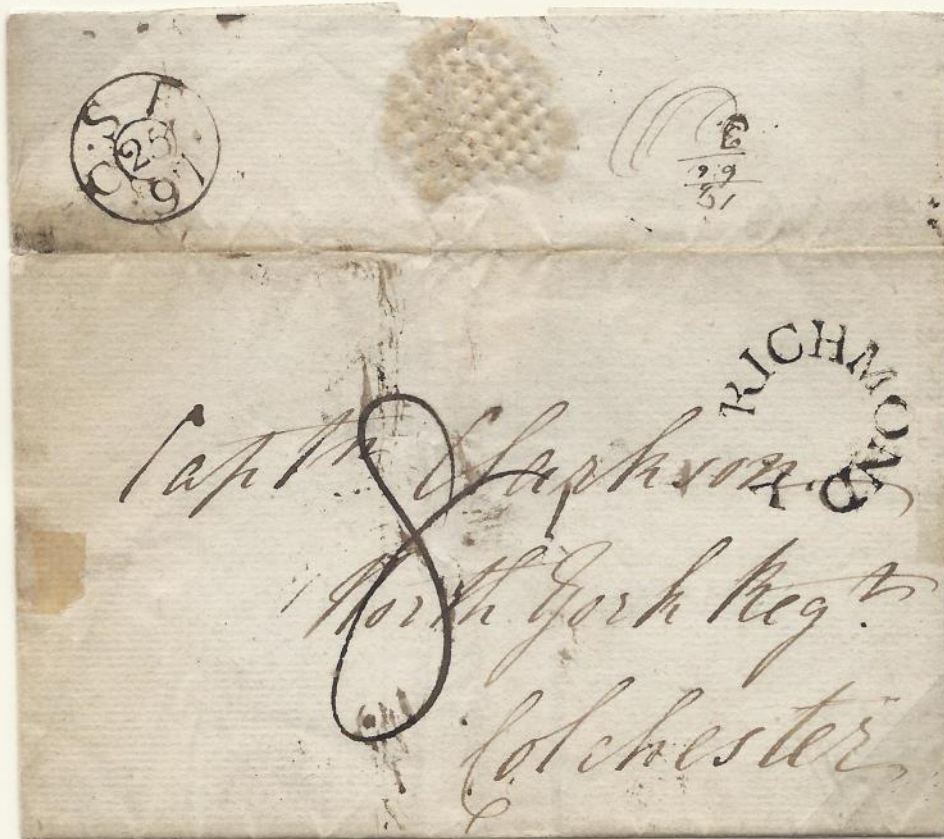 SE
23
C 97
RICHMOND
Y
Captn Clarkson.
8
North York Regt.
Colchester